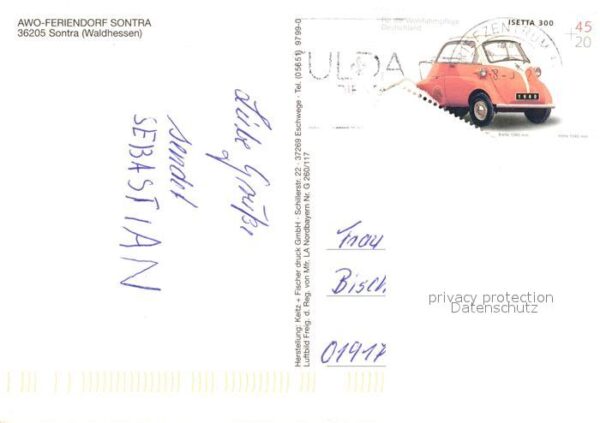 AWO-FERIENDORF SONTRA
36205 Sontra (Waldhessen)
Für die Wohlfahrtspflege
Deutschland
ISETTA 300
45
+20
BRIEFZENTRUM
ULDA
Liebe Grüße
sendet
SEBASTIAN
Herstellung: Keitz + Fischer druck GmbH · Schillerstr. 22 · 37269 Eschwege · Tel. (05651) 9799-0
Luftbild Freig. d. Reg. von Mfr. LA Nordbayern Nr. G 260/117
Frau
Bisch
01917
privacy protection
Datenschutz